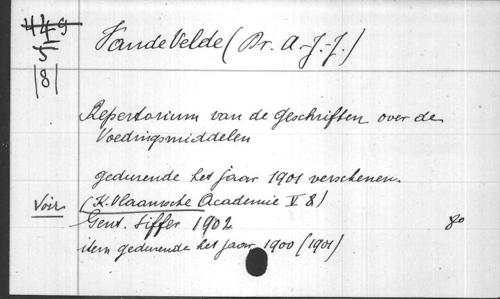 449
5
|8|
VandeVelde (Dr. A.-J.-J.)
Repertorium van de geschriften over de
Voedingsmiddelen
gedurende het jaar 1901 verschenen.
(K. Vlaamsche Academie V 8)
Voir
Gent. Siffer 1902
8o
item gedurende het jaar 1900 (1901)